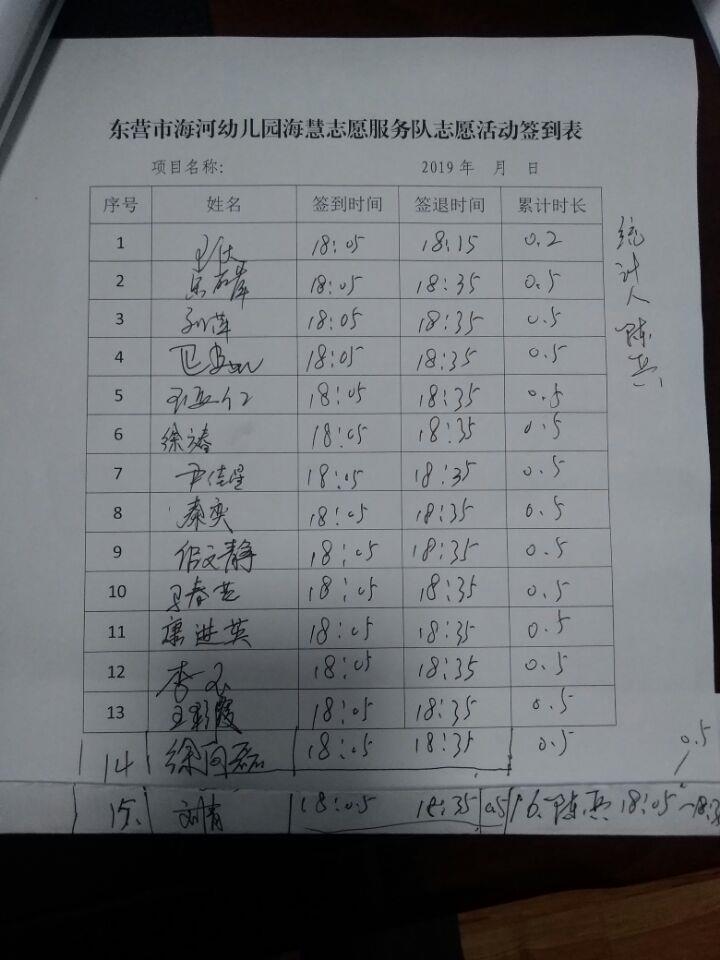 东营市海河幼儿园海慧志愿服务队志愿活动签到表
项目名称: 2019 年 月 日
序号 姓名 签到时间 签退时间 累计时长
1 18:05 18:15 0.2
2 18:05 18:35 0.5
3 孙萍 18:05 18:35 0.5
4 18:05 18:35 0.5
5 18:05 18:35 0.5
6 徐 18:05 18:35 0.5
7 尹佳星 18:05 18:35 0.5
8 秦奕 18:05 18:35 0.5
9 文静 18:05 18:35 0.5
10 春芝 18:05 18:35 0.5
11 康进英 18:05 18:35 0.5
12 李 18:05 18:35 0.5
13 王彩霞 18:05 18:35 0.5
14 徐同磊 18:05 18:35 0.5
15. 刘青 18:05 18:35 0.5
16. 陈兵 18:05~18:3
0.5
统计人 陈兵